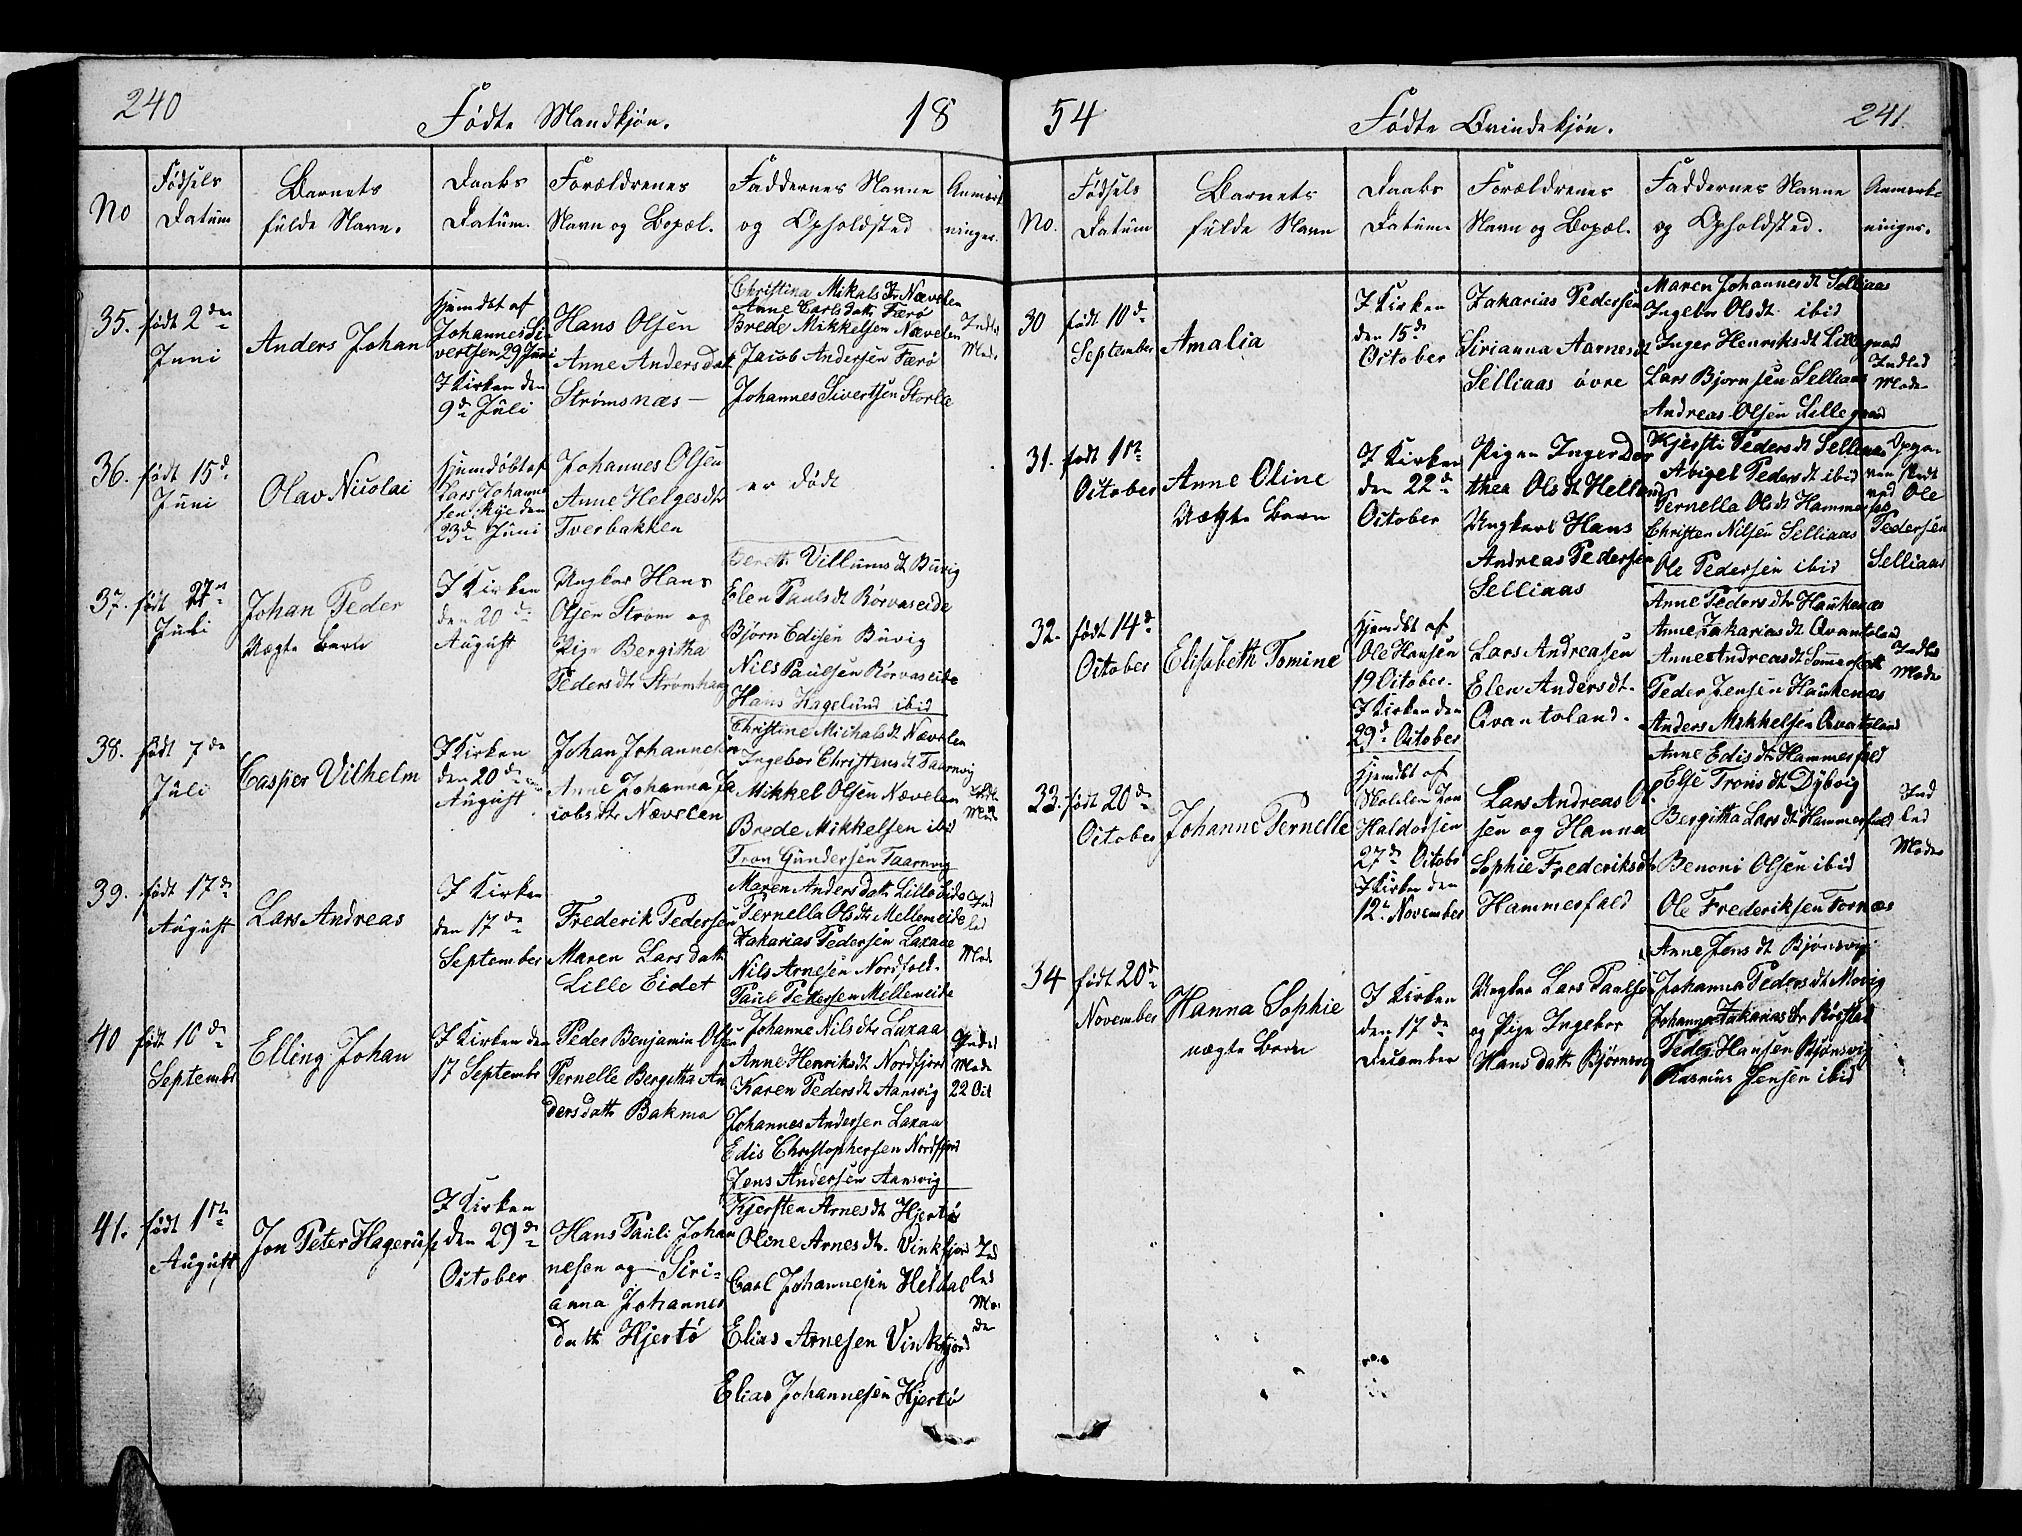 240
Fødte Mandkjøn.
18
No
Fødsels
Datum
Barnets
fulde Navn.
Daabs
Datum.
Forældrenes
Navn og Bopæl.
Faddernes Navne
og Opholdsted
Anmærk
ninger.
35.
født 2den
Juni
Anders Johan
Hjemdøbt af
Johannes Si
vertsen 29 Juni
I Kirken den
9de Juli
Hans Olsen
Anne Andersdatt
Strømsnæs
Christina Mikalsdtr Nævelen
Anne Carls Datt Færø
Brede Mikkelsen Nævelen
Jacob Andersen Færø
Johannes Sivertsen Storlie
Indled
Mode
36.
født 15d
Juni
Olav Nicolai
Hjemdøbt af
Lars Johanne
sen Kye den
23de Juni
Johannes Olsen
Anne Helgesdtr
Tverbakken
er død
37.
født 27n
Juli
Johan Peder
Uægte barn
I Kirken
den 20de
August
Ungkar Hans
Olsen Strøm og
Pige Bergitha
Pedersdtr Strømhaug
Bereth Villumsdt Buvig
Elen Paulsdt Rørvaseide
Bjørn Edisen Buvig
Nils Paulsen Rørvaseide
Hans Hagelund ibid
38.
født 7de
Juli
Casper Vilhelm
I Kirken
den 20de
August
Johan Johannesen
Anne Johanna Ja
cobsdtr Nævelen
Christine Michalsdt Nævelen
Ingebor Christensdt Taarnvig
Mikkel Olsen Nævelen
Brede Mikkelsen ibid
Tron Gundersen Taarnvig
39.
født 17de
August
Lars Andreas
I Kirken
den 17de
September
Frederik Pedersen
Maren Larsdatt
Lille Eidet
Maren Andersdatt Lilleeide
Pernella Olsdt Mellemeide
Zakarias Pedersen Laxaae
Nils Arnesen Nordfold
Paul Pettersen Mellemeide
Ind
led
Mode
40
født 10de
Septembr
Elling Johan
I Kirken den
17 Septembr
Peder Benjamin Olsen
Pernelle Bergitha An
dersdatt Bakmo
Johanne Nilsdtr Laxaa
Anne Henriksdt Nordfjord
Karen Pedersdt Aansvig
Johannes Andersen Laxaa
Edis Christophersen Nordfjord
Jens Andersen Aansvig
Indled
Mode
22 Oct
41.
født 1ste
August
Jon Peter Hagerup
I Kirken
den 29de
October
Hans Pauli Johan
nesen og Siri-
anna Johannes
datt Hjertø
Kjersten Arnesdt Hjertø
Oline Arnesdtr Vinkfjord
Carl Johannesen Heldal
Elias Arnesen Vinkfjord
Elias Johannesen Hjertø
Ind
led
Mo
de
54
Fødte Qvindekjøn.
241.
No.
Fødsels
Datum
Barnets
fulde Navn
Daabs
Datum.
Forældrenes
Navn og Bopæl.
Faddernes Navne
og Opholdsted.
Anmærk-
ninger.
30
født 10de
September
Amalia
I Kirken
den 15de
October
Zakarias Pedersen
Sirianna Aarnesdt
Selliaas øvre
Maren Johannesdt Selliaas
Ingebor Olsdt ibid
Inger Henriksdt Lillegaard
Lars Bjørnsen Selliaas
Andreas Olsen Lillegaard
Indled
Mode
31.
født 1ste
October
Anne Oline
Uægte Barn
I Kirken
den 22de
October
Pigen Inger Dor
thea Olsdt Helland
Ungkarl Hans
Andreas Pedersen
Selliaas
Kjersti Pedersdt Selliaas
Abigel Pedersdt ibid
Pernella Olsdt Hammernes
Christen Nilsen Selliaas
Ole Pedersen ibid
Opga
ven skedt
ved Ole
Pedersen
Selliaas
32.
født 14de
October
Elisabeth Tomine
Hjemdøbt af
Ole Hansen
19 October.
I Kirken den
29de October
Lars Andreasen
Elen Andersdt.
Qvantoland.
Anne Pedersdtr Haukenæs
Anne Zakariasdt Qvantoland
Anne Andreasdt Sommerset
Peder Jensen Haukenæs
Anders Mikkelsen Qvantoland
Indled
Mode
33.
født 20de
October
Johanne Pernelle
Hjemdøbt af
Jon
Haldorsen
27de Octobr
I Kirken den
12te November
Lars Andreas Ol
sen og Hanna
Sophie Frederiksdtr
Hammerfald
Anne Edisdtr Hammerfald
Else Tronsdt Dybvig
Bergitha Larsdt Hammerfald
Benoni Olsen ibid
Ole Frederiksen Fornæs
Ind
led
Mode
34
født 20de
November
Hanna Sophie
uægte Barn
I Kirken
den 17de
December
Ungkar Lars Paulsen
og Pige Ingebor
Hansdatt Bjørnsvig
Anne Jensdt Bjørnsvig
Johanna Pedersdt Movig
Johanna Zakariasdtr Røsstad
Peder Hansen Bjørnsvig
Rasmus Jensen ibid